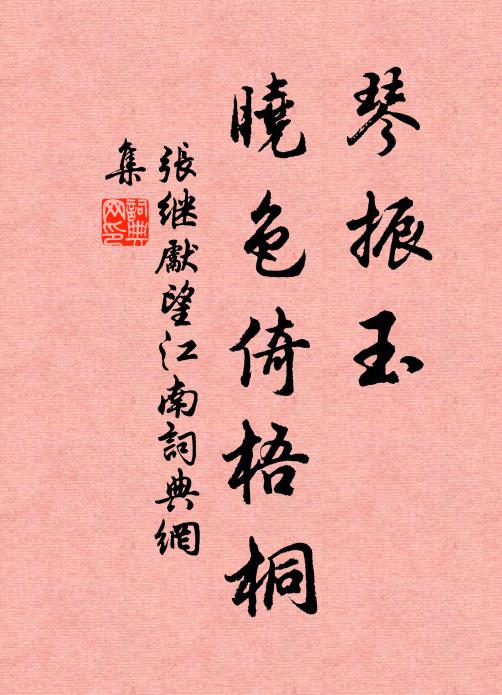 琴振玉
曉色倚梧桐
張继獻望江南詞典網
集
詞典网印